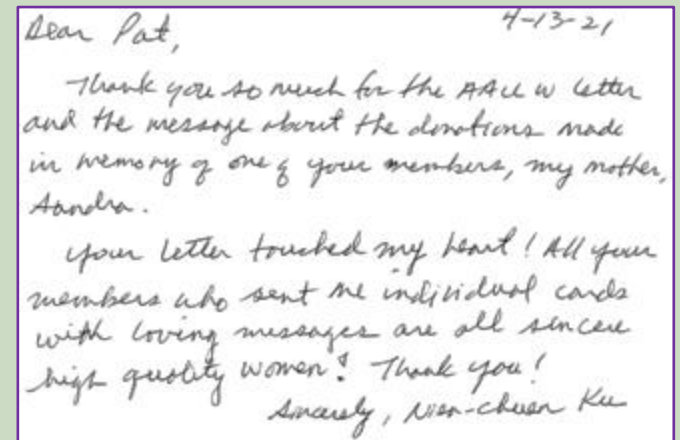 Dear Pat,
4-13-21
Thank you so much for the AAUW letter
and the message about the donations made
in memory of one of your members, my mother,
Sandra.
Your letter touched my heart! All your
members who sent me individual cards
with loving messages are all sincere
high quality women! Thank you!
Sincerely, Nien-chuan Ku